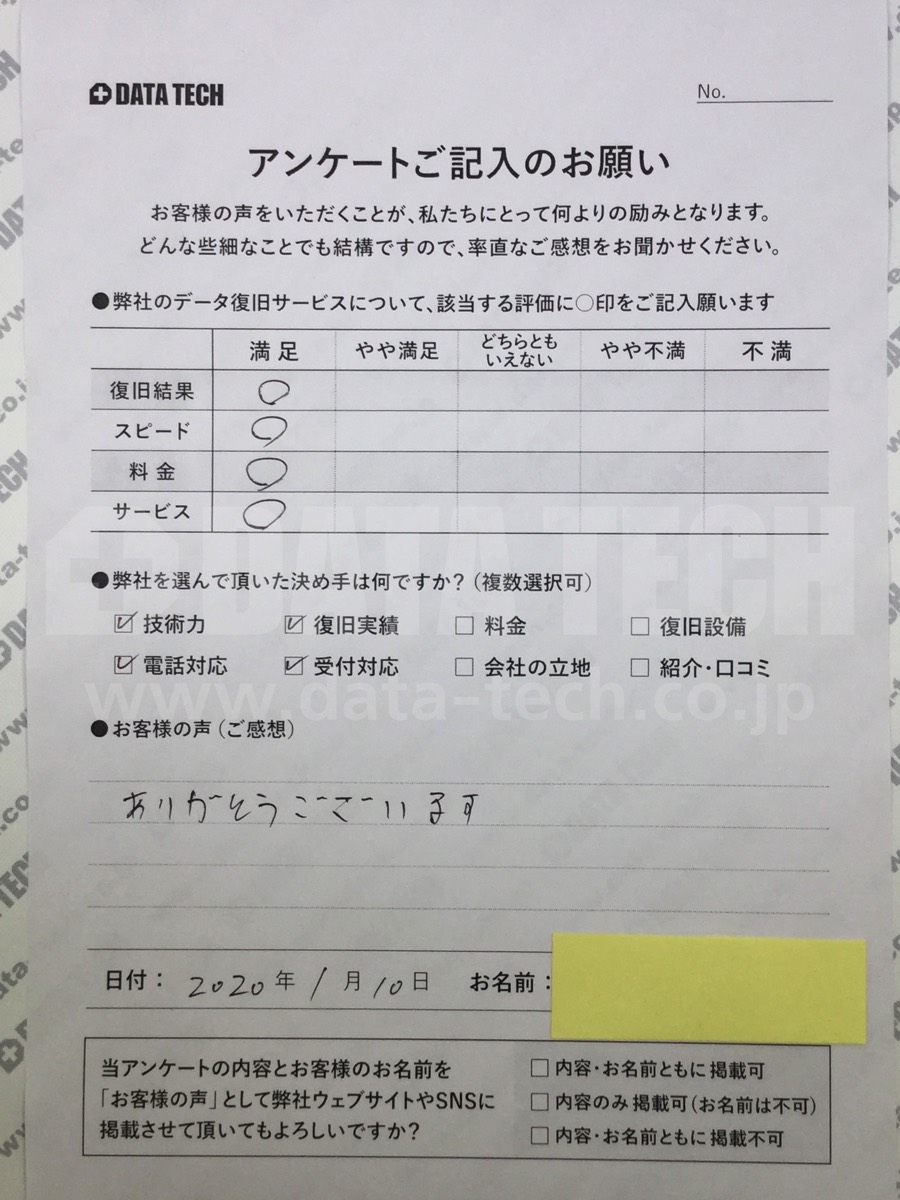 DATA TECH
No.
アンケートご記入のお願い
お客様の声をいただくことが、私たちにとって何よりの励みとなります。
どんな些細なことでも結構ですので、率直なご感想をお聞かせください。
●弊社のデータ復旧サービスについて、該当する評価に○印をご記入願います
満足 やや満足 どちらとも いえない やや不満 不満
復旧結果 ○
スピード ○
料金 ○
サービス ○
DATA TECH
●弊社を選んで頂いた決め手は何ですか?(複数選択可)
☑ 技術力 ☑ 復旧実績 □ 料金 □ 復旧設備
☑ 電話対応 ☑ 受付対応 □ 会社の立地 □ 紹介・口コミ
www.data-tech.co.jp
●お客様の声(ご感想)
ありがとうございます
日付: 2020年 1月 10日 お名前:
当アンケートの内容とお客様のお名前を
「お客様の声」として弊社ウェブサイトやSNSに
掲載させて頂いてもよろしいですか?
□ 内容・お名前ともに掲載可
□ 内容のみ掲載可(お名前は不可)
□ 内容・お名前ともに掲載不可